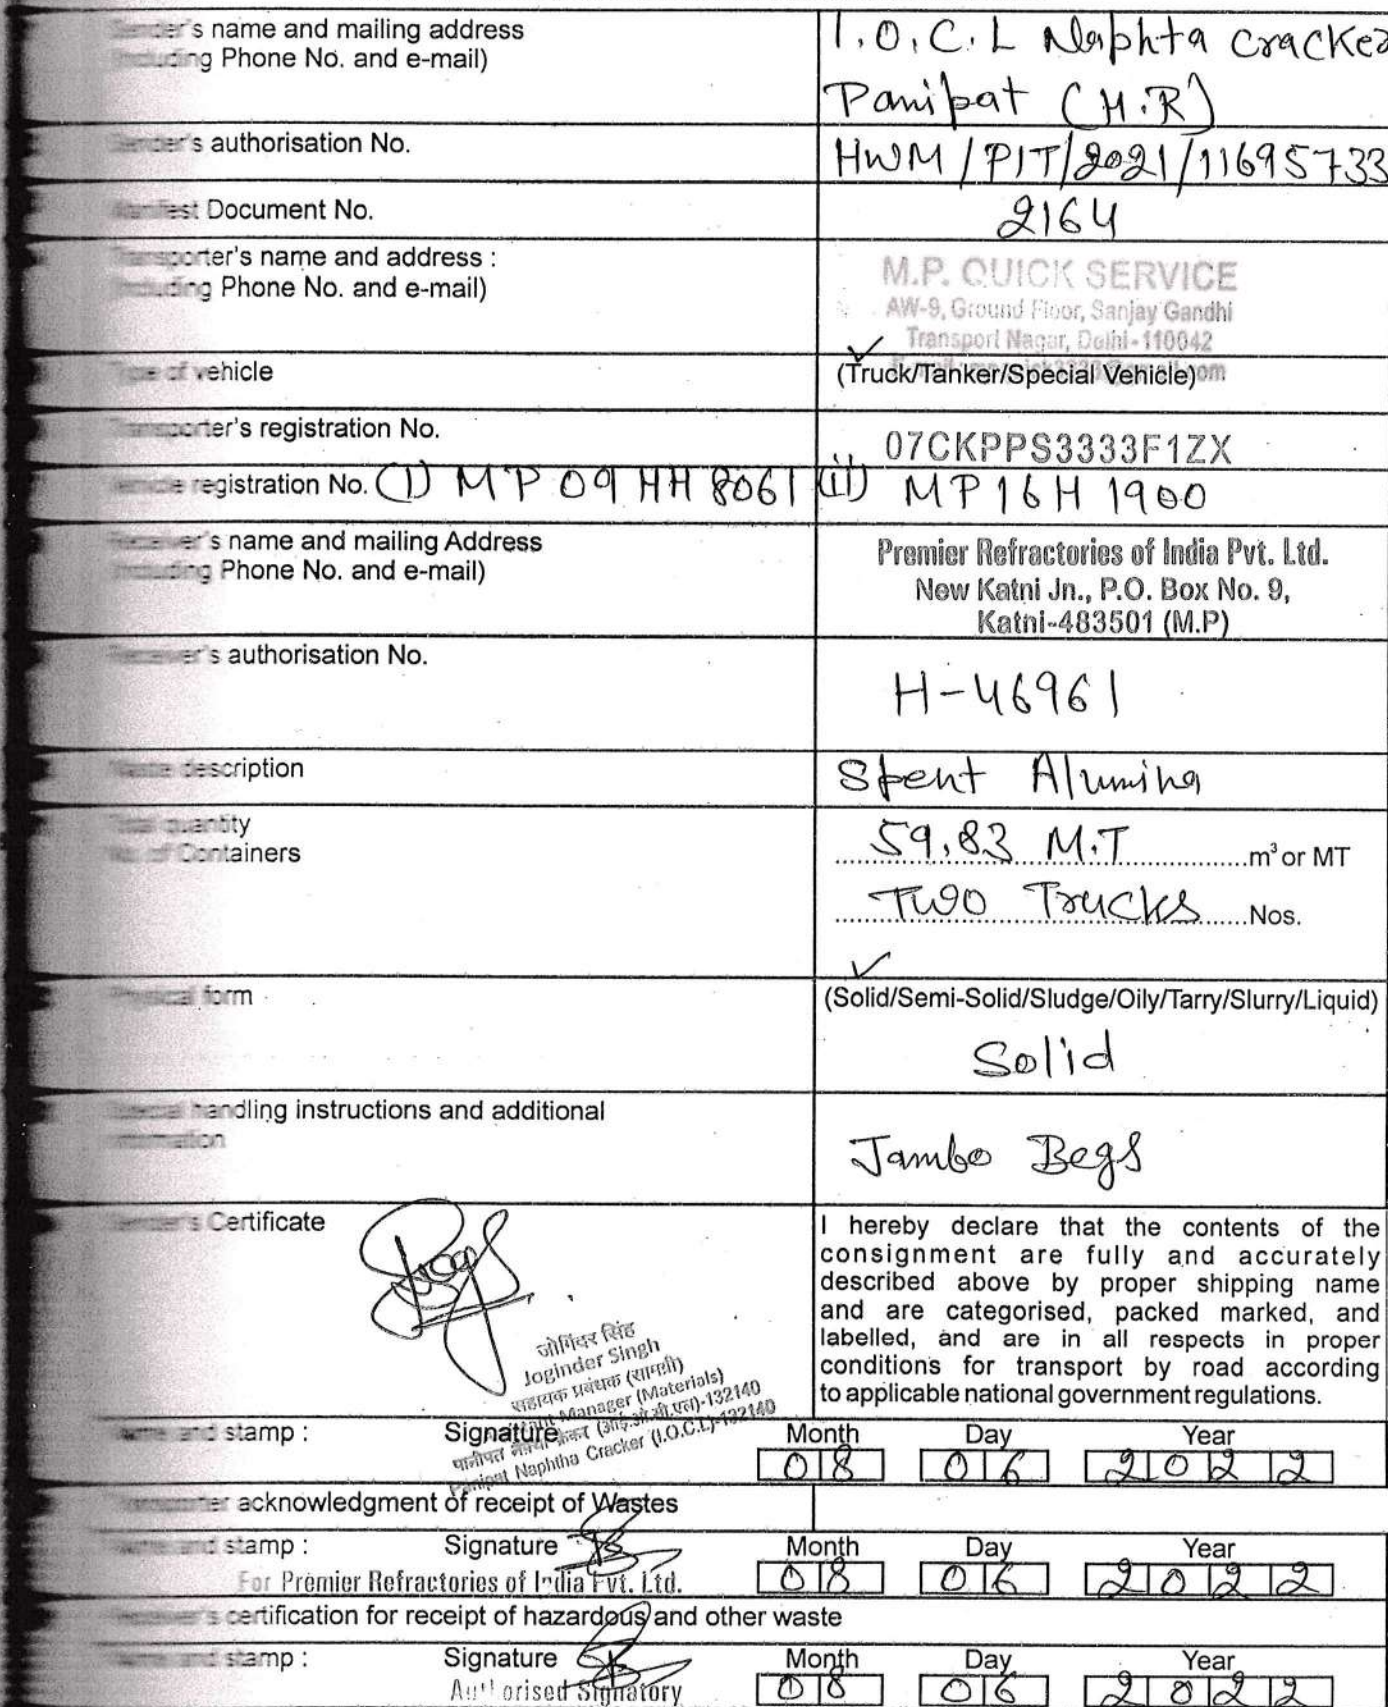 Sender's name and mailing address
(including Phone No. and e-mail)
I.O.C.L Naphta cracker
Panipat (H.R)
Sender's authorisation No.
HWM/PIT/2021/11695733
Manifest Document No.
2164
Transporter's name and address :
(including Phone No. and e-mail)
M.P. QUICK SERVICE
AW-9, Ground Floor, Sanjay Gandhi
Transport Nagar, Delhi-110042
Type of vehicle
✓
(Truck/Tanker/Special Vehicle)
Transporter's registration No.
07CKPPS3333F1ZX
Vehicle registration No. (I) MP 09 HH 8061 (ii) MP 16 H 1900
Receiver's name and mailing Address
(including Phone No. and e-mail)
Premier Refractories of India Pvt. Ltd.
New Katni Jn., P.O. Box No. 9,
Katni-483501 (M.P)
Receiver's authorisation No.
H-46961
Waste description
Spent Alumina
Total quantity
No. of Containers
59.83 M.T m³ or MT
Two Trucks Nos.
Physical form
✓
(Solid/Semi-Solid/Sludge/Oily/Tarry/Slurry/Liquid)
Solid
Special handling instructions and additional
information
Jambo Begs
Sender's Certificate
I hereby declare that the contents of the
consignment are fully and accurately
described above by proper shipping name
and are categorised, packed marked, and
labelled, and are in all respects in proper
conditions for transport by road according
to applicable national government regulations.
जोगिंदर सिंह
Joginder Singh
सहायक प्रबंधक (सामग्री)
Manager (Materials)
पानीपत नैफ्था क्रैकर (आई.ओ.सी.एल)-132140
Panipat Naphtha Cracker (I.O.C.L)-132140
Name and stamp : Signature Month Day Year
08 06 2022
Transporter acknowledgment of receipt of Wastes
Name and stamp : Signature Month Day Year
For Premier Refractories of India Pvt. Ltd. 08 06 2022
Receiver's certification for receipt of hazardous and other waste
Name and stamp : Signature Month Day Year
Authorised Signatory 08 06 2022